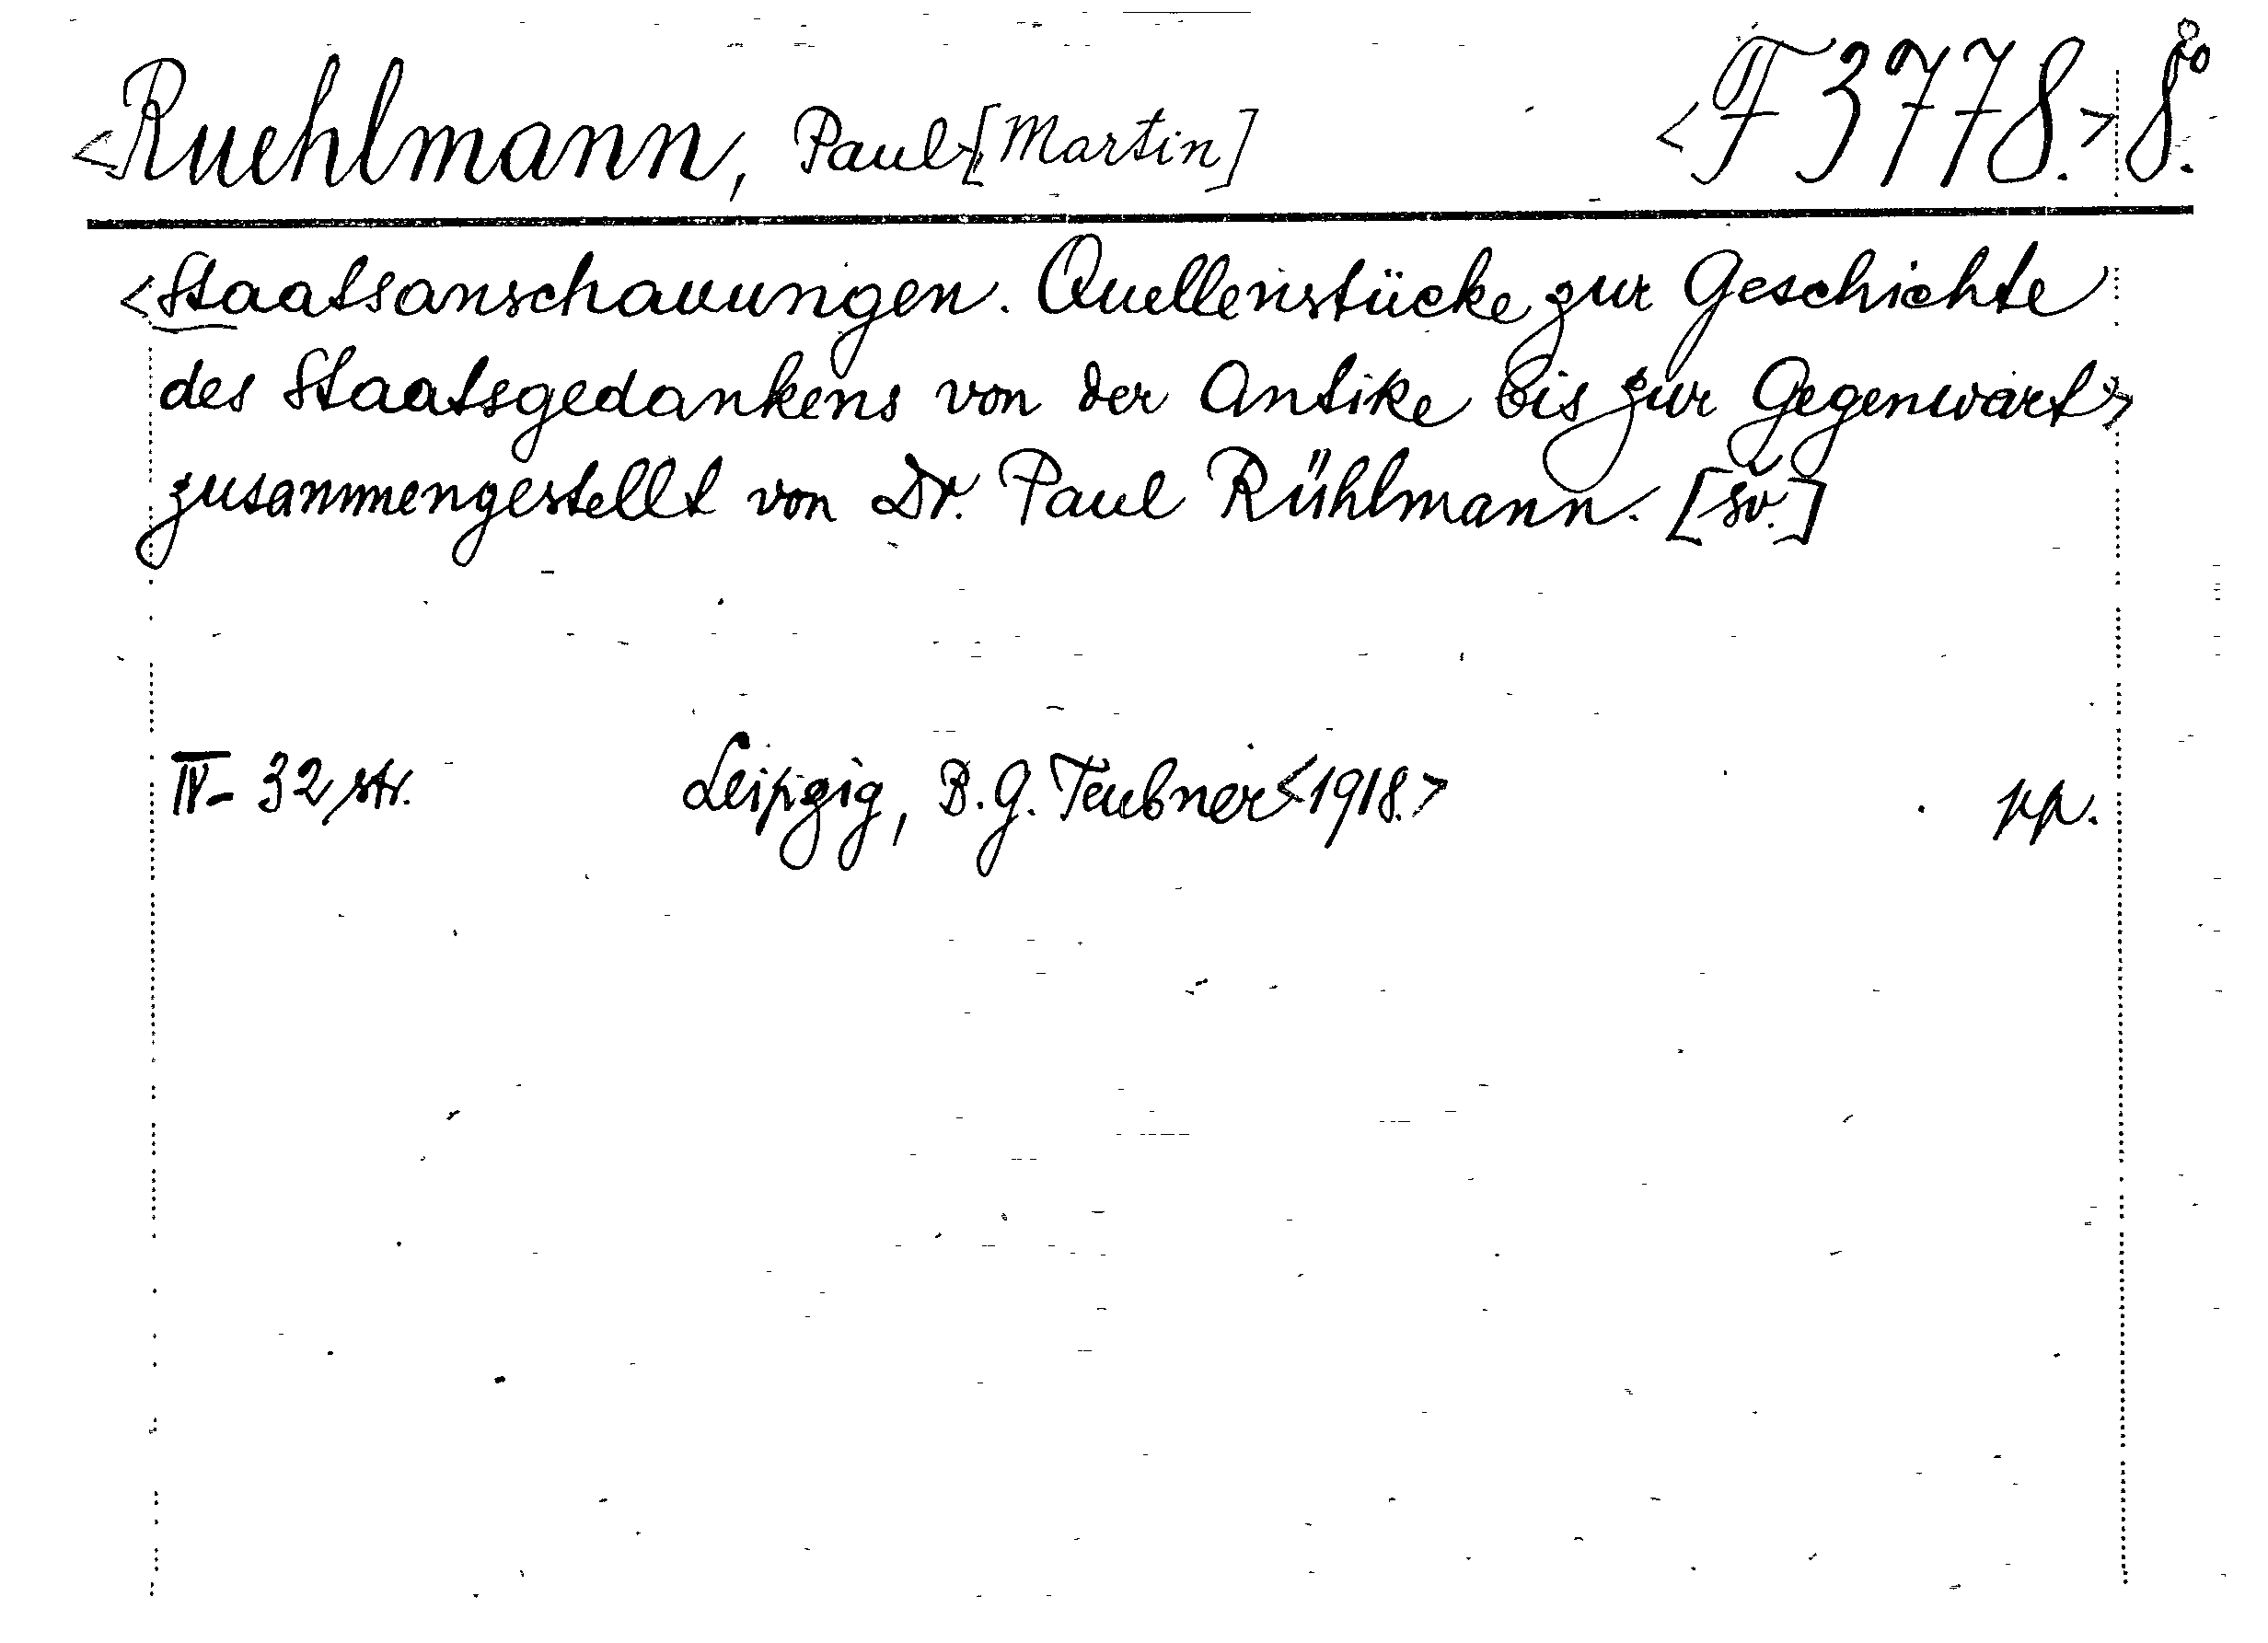 <Ruehlmann, Paul [Martin] <F 3778.> 8°.
<Staatsanschauungen. Quellenstücke zur Geschichte
des Staatsgedankens von der Antike bis zur Gegenwart>
zusammengestellt von Dr. Paul Rühlmann. [šv.]
IV - 32 str. Leipzig, B. G. Teubner <1918.> pp.